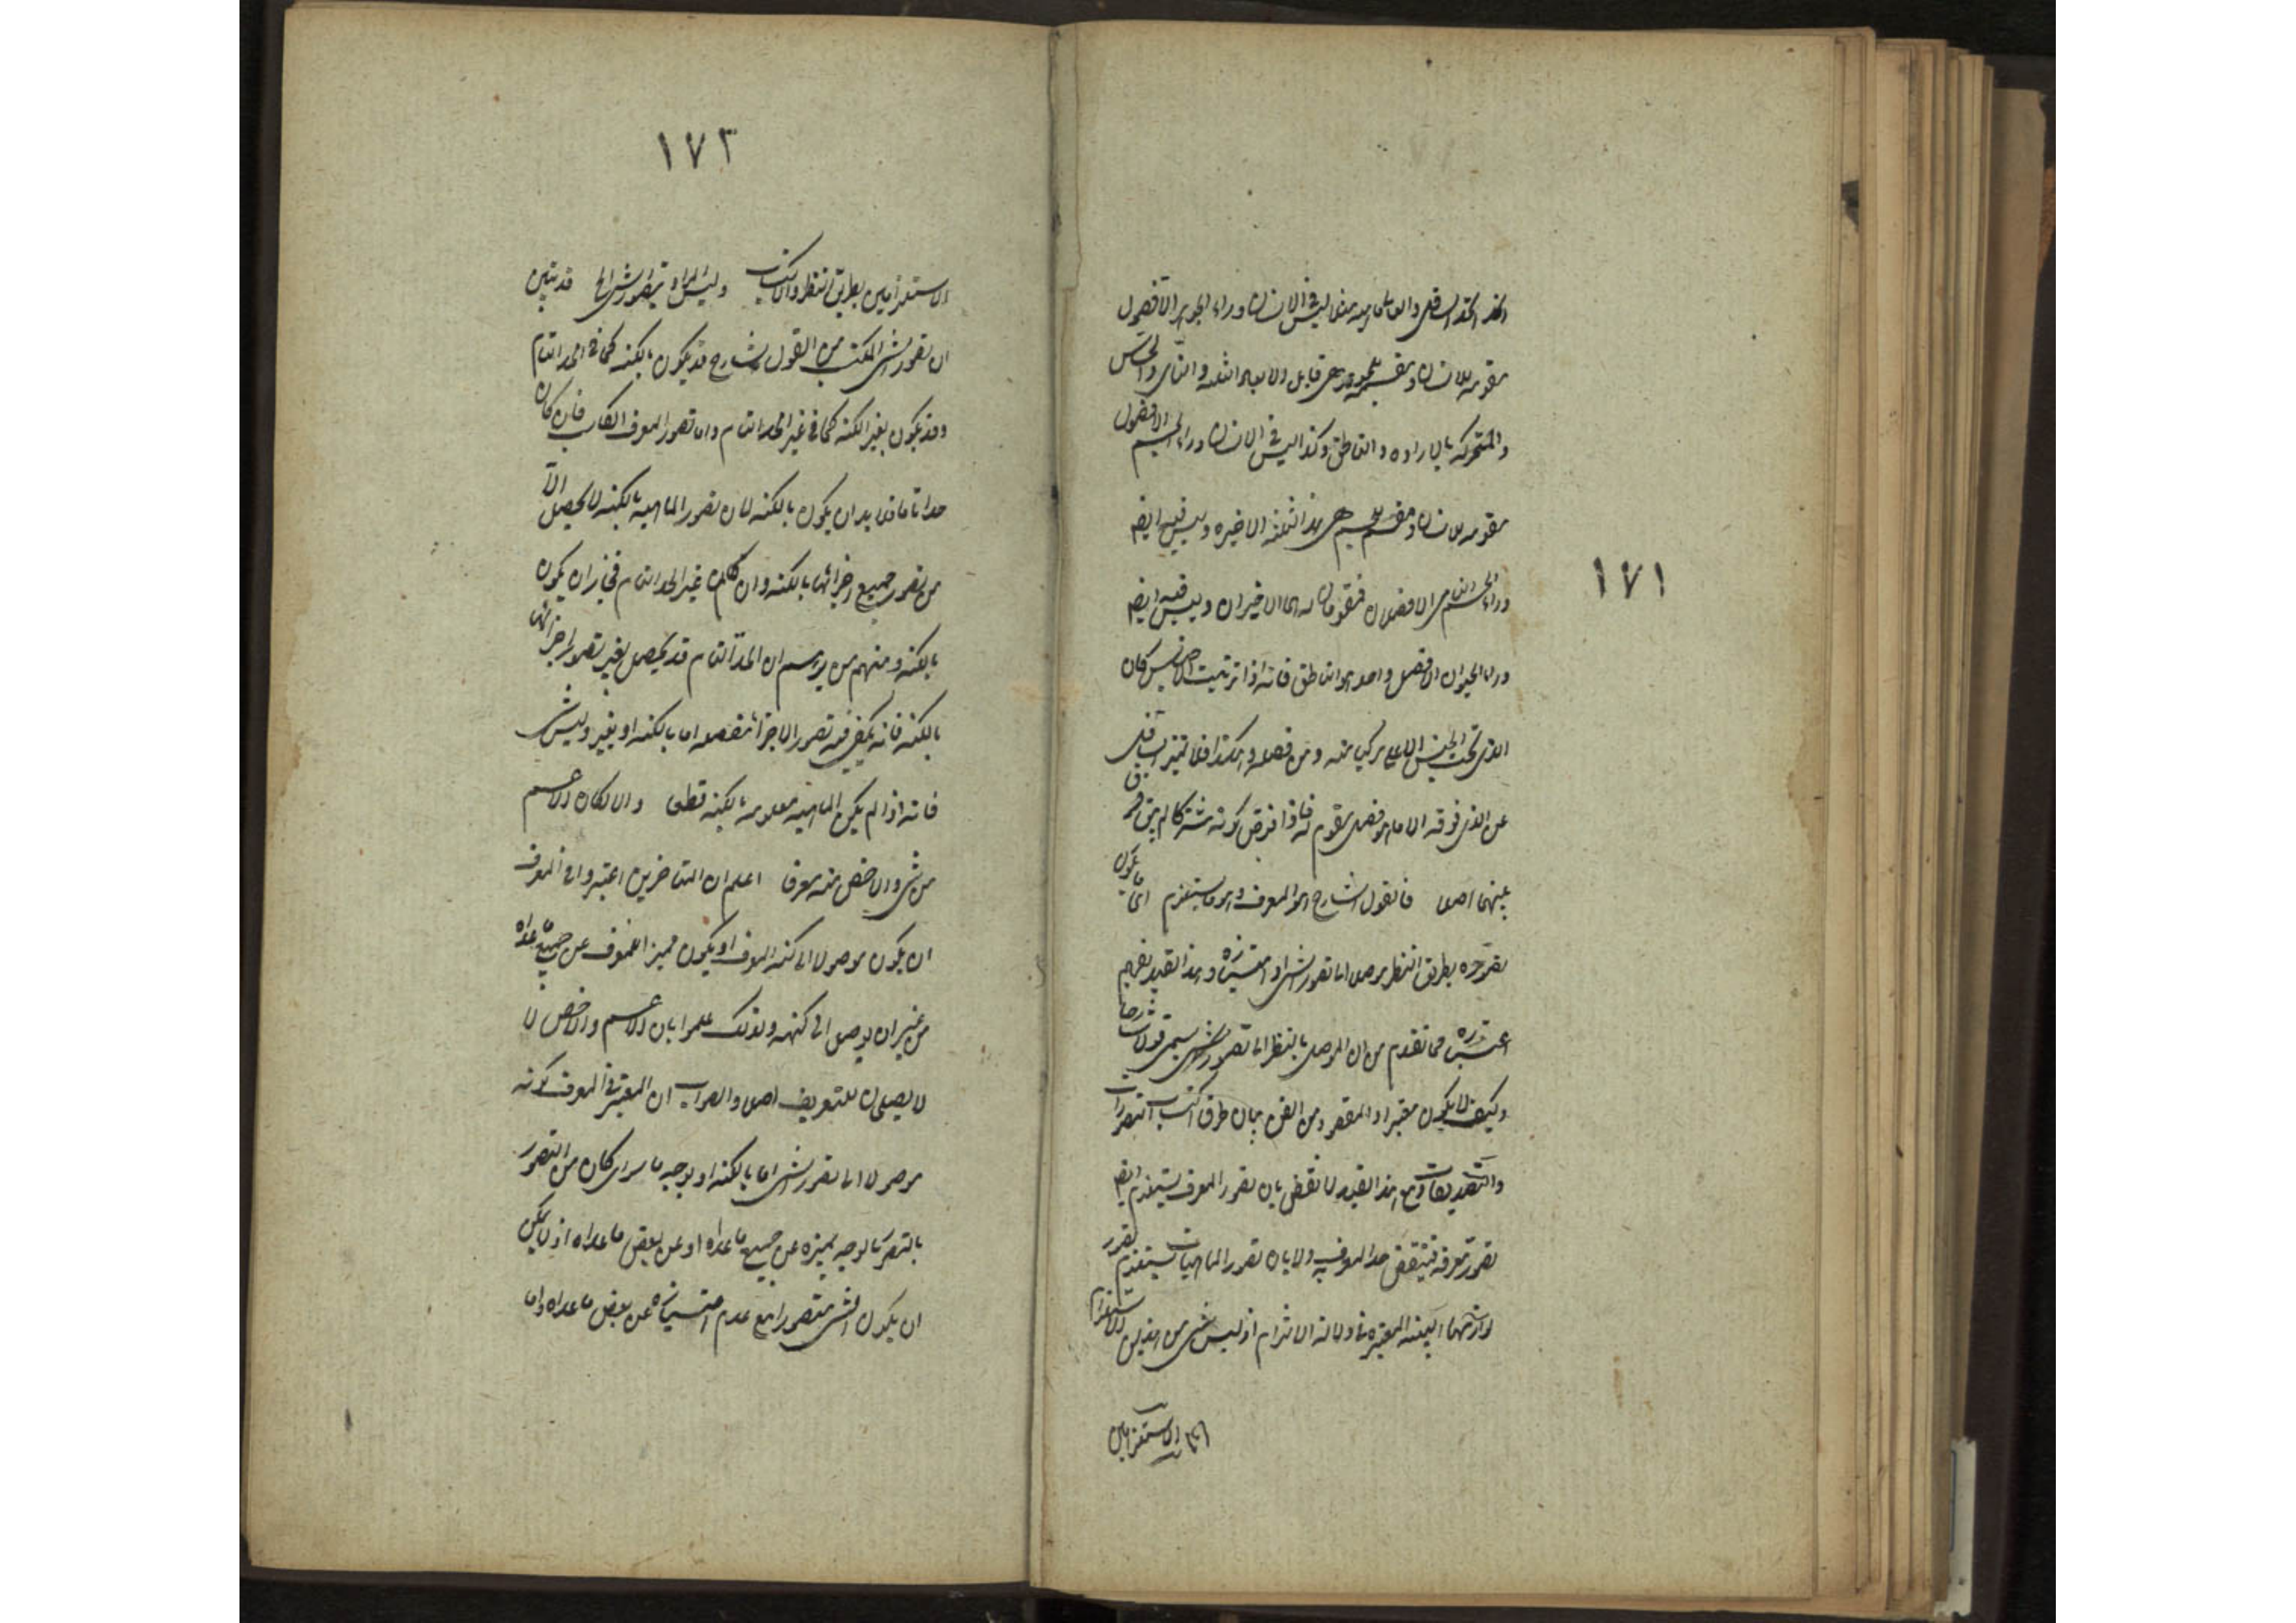 ١٧١
مقومه للانسان ومقسمه للجوهر هى قابل الابعاد الثلثه والنامى والحساس
والمتحركه بالاراده والناطق وكذا ليس فى الانسان وراء الجسم الا فصول
مقومه للانسان ومقسمه للجسم هى هذه الثلثه الاخيره وليس فيه ايضا
وراء الجسم النامى الا فصلان مقومان له هما الاخيران وليس فيه ايضا
وراء الحيوان الا فصل واحد هو الناطق فانه اذا ترتبت الاجناس كان
الذى تحت الجنس العالى يركب منه ومن فصله وهكذا فلا تميز السافل
عن الذى فوقه الا ما هو فصل مقوم له فاذا فرض كونه مشتركا لم يبق فرق
بينهما اصلا فالقول الشارح هو المعرف وهو ما يستلزم اى ما يكون
تصوره بطريق النظر موصلا الى تصور الشى او امتيازه وهذا القيد يفهم
اعتباره مما تقدم من ان الموصل بالنظر الى تصور شى يسمى قولا شارحا
وكيف لا يكون معتبرا والمقصود من الفن بيان طرق اكتساب التصورات
والتصديقات ومع هذا القيد لا نقض بان تصور المعرف يستلزم ايضا
تصور معرفه فينتقض حد المعرف به ولا بان تصور الماهيات يستلزم تصور
لوازمها البينه المعتبره فى دلالة الالتزام اذ ليس شى من هذين الاستلزام
الاستلزامين
١٧٢
الاستلزامين بطريق النظر والاكتساب وليس المراد بتصور الشى الخ قد تبين
ان تصور الشى المكتسب من القول الشارح قد يكون بالكنه كما فى الحد التام
وقد يكون بغير الكنه كما فى غير الحد التام واما تصور المعرف الكاسب فان كان
حدا تاما فلا بد ان يكون بالكنه لان تصور الماهيه بالكنه لا يحصل الا
من تصور جميع اجزائها بالكنه وان كان غير الحد التام فجاز ان يكون
بالكنه ومنهم من يرسم ان الحد التام قد يحصل بغير تصور اجزائها
بالكنه فانه يكفى فيه تصور الاجزاء مفصله اما بالكنه او بغيره وليس بشى
فانه اذا لم يكن الماهيه معلومه بالكنه قطعا والا لكان الاعم
من شى والاخص منه معرفا اعلم ان المتاخرين اعتبروا فى المعرف
ان يكون موصلا الى كنه المعرف او يكون مميزا للمعرف عن جميع ما عداه
من غير ان يوصل الى كنهه ولذلك حكموا بان الاعم والاخص لا
لا يصلحان للتعريف اصلا والصواب ان المعتبر فى المعرف كونه
موصلا الى تصور الشى اما بالكنه او بوجه ما سواء كان من التصور
بالتصور بالوجه يميزه عن جميع ما عداه او عن بعض ما عداه اذ لا يمكن
ان يكون الشى متصورا مع عدم امتيازه عن بعض ما عداه واما